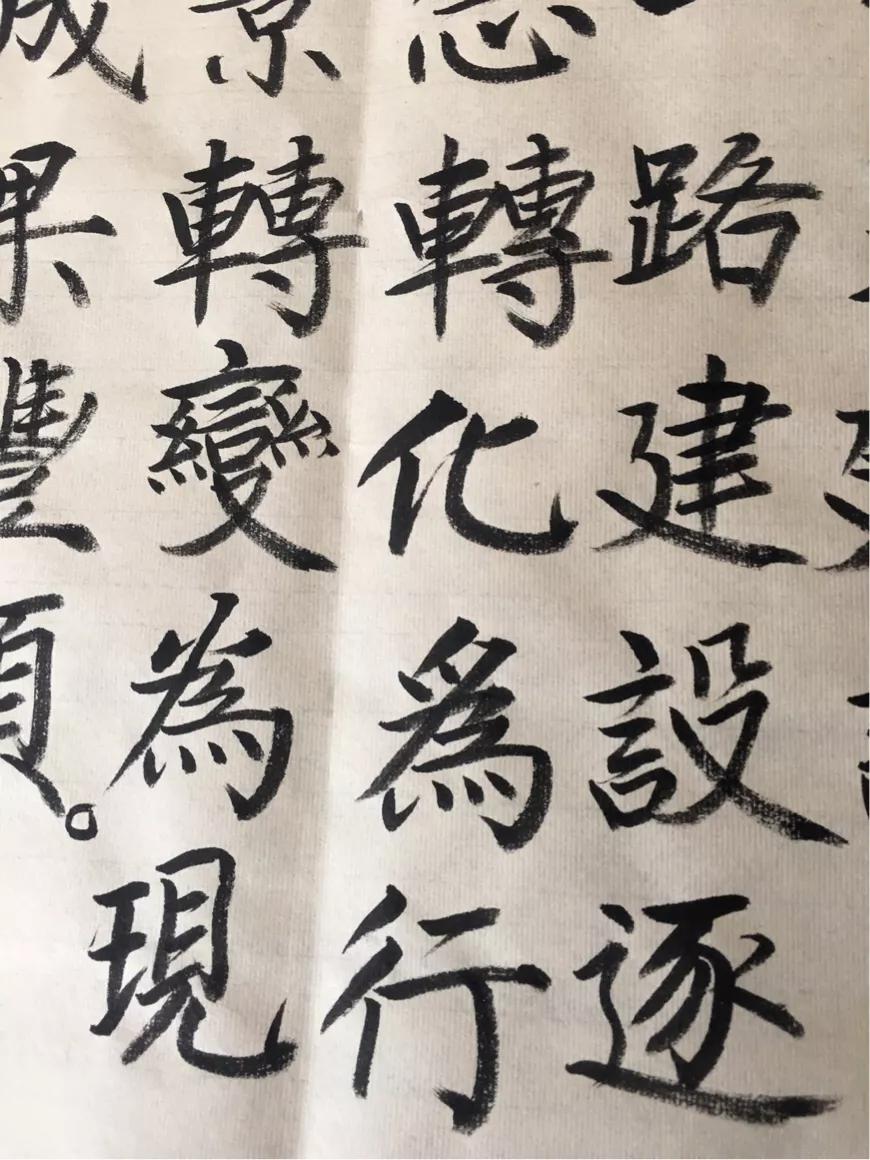 路建設逐
念轉化爲行
景轉變為現
成果豐碩。